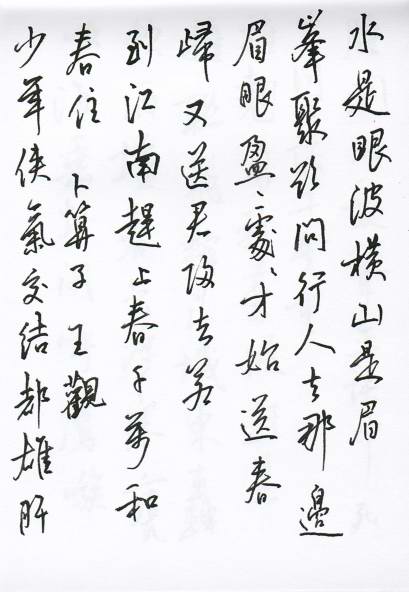 水是眼波横山是眉
峯聚欲問行人去那邊
眉眼盈〻處〻才始送春
歸又送君归去若
到江南趕上春千萬和
春住 卜算子 王觀
少年俠氣交結都雄肝